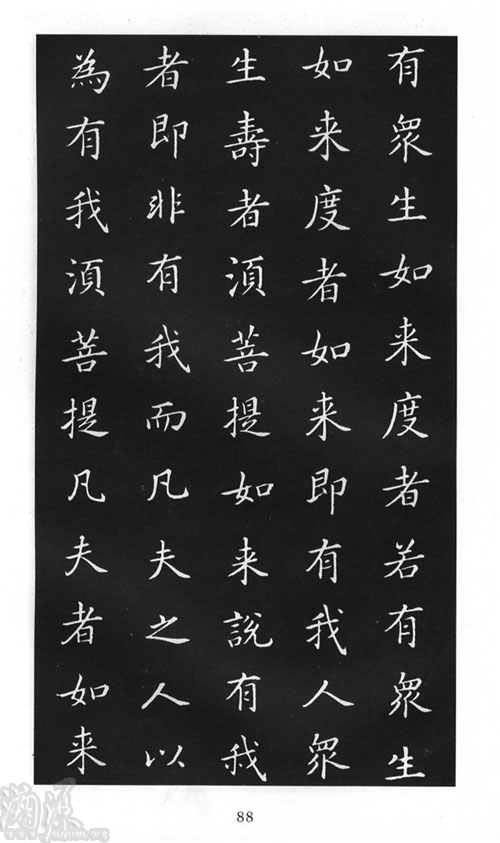 有眾生如来度者若有眾生
如来度者如来即有我人眾
生壽者湏菩提如来說有我
者即非有我而凡夫之人以
為有我湏菩提凡夫者如来
88